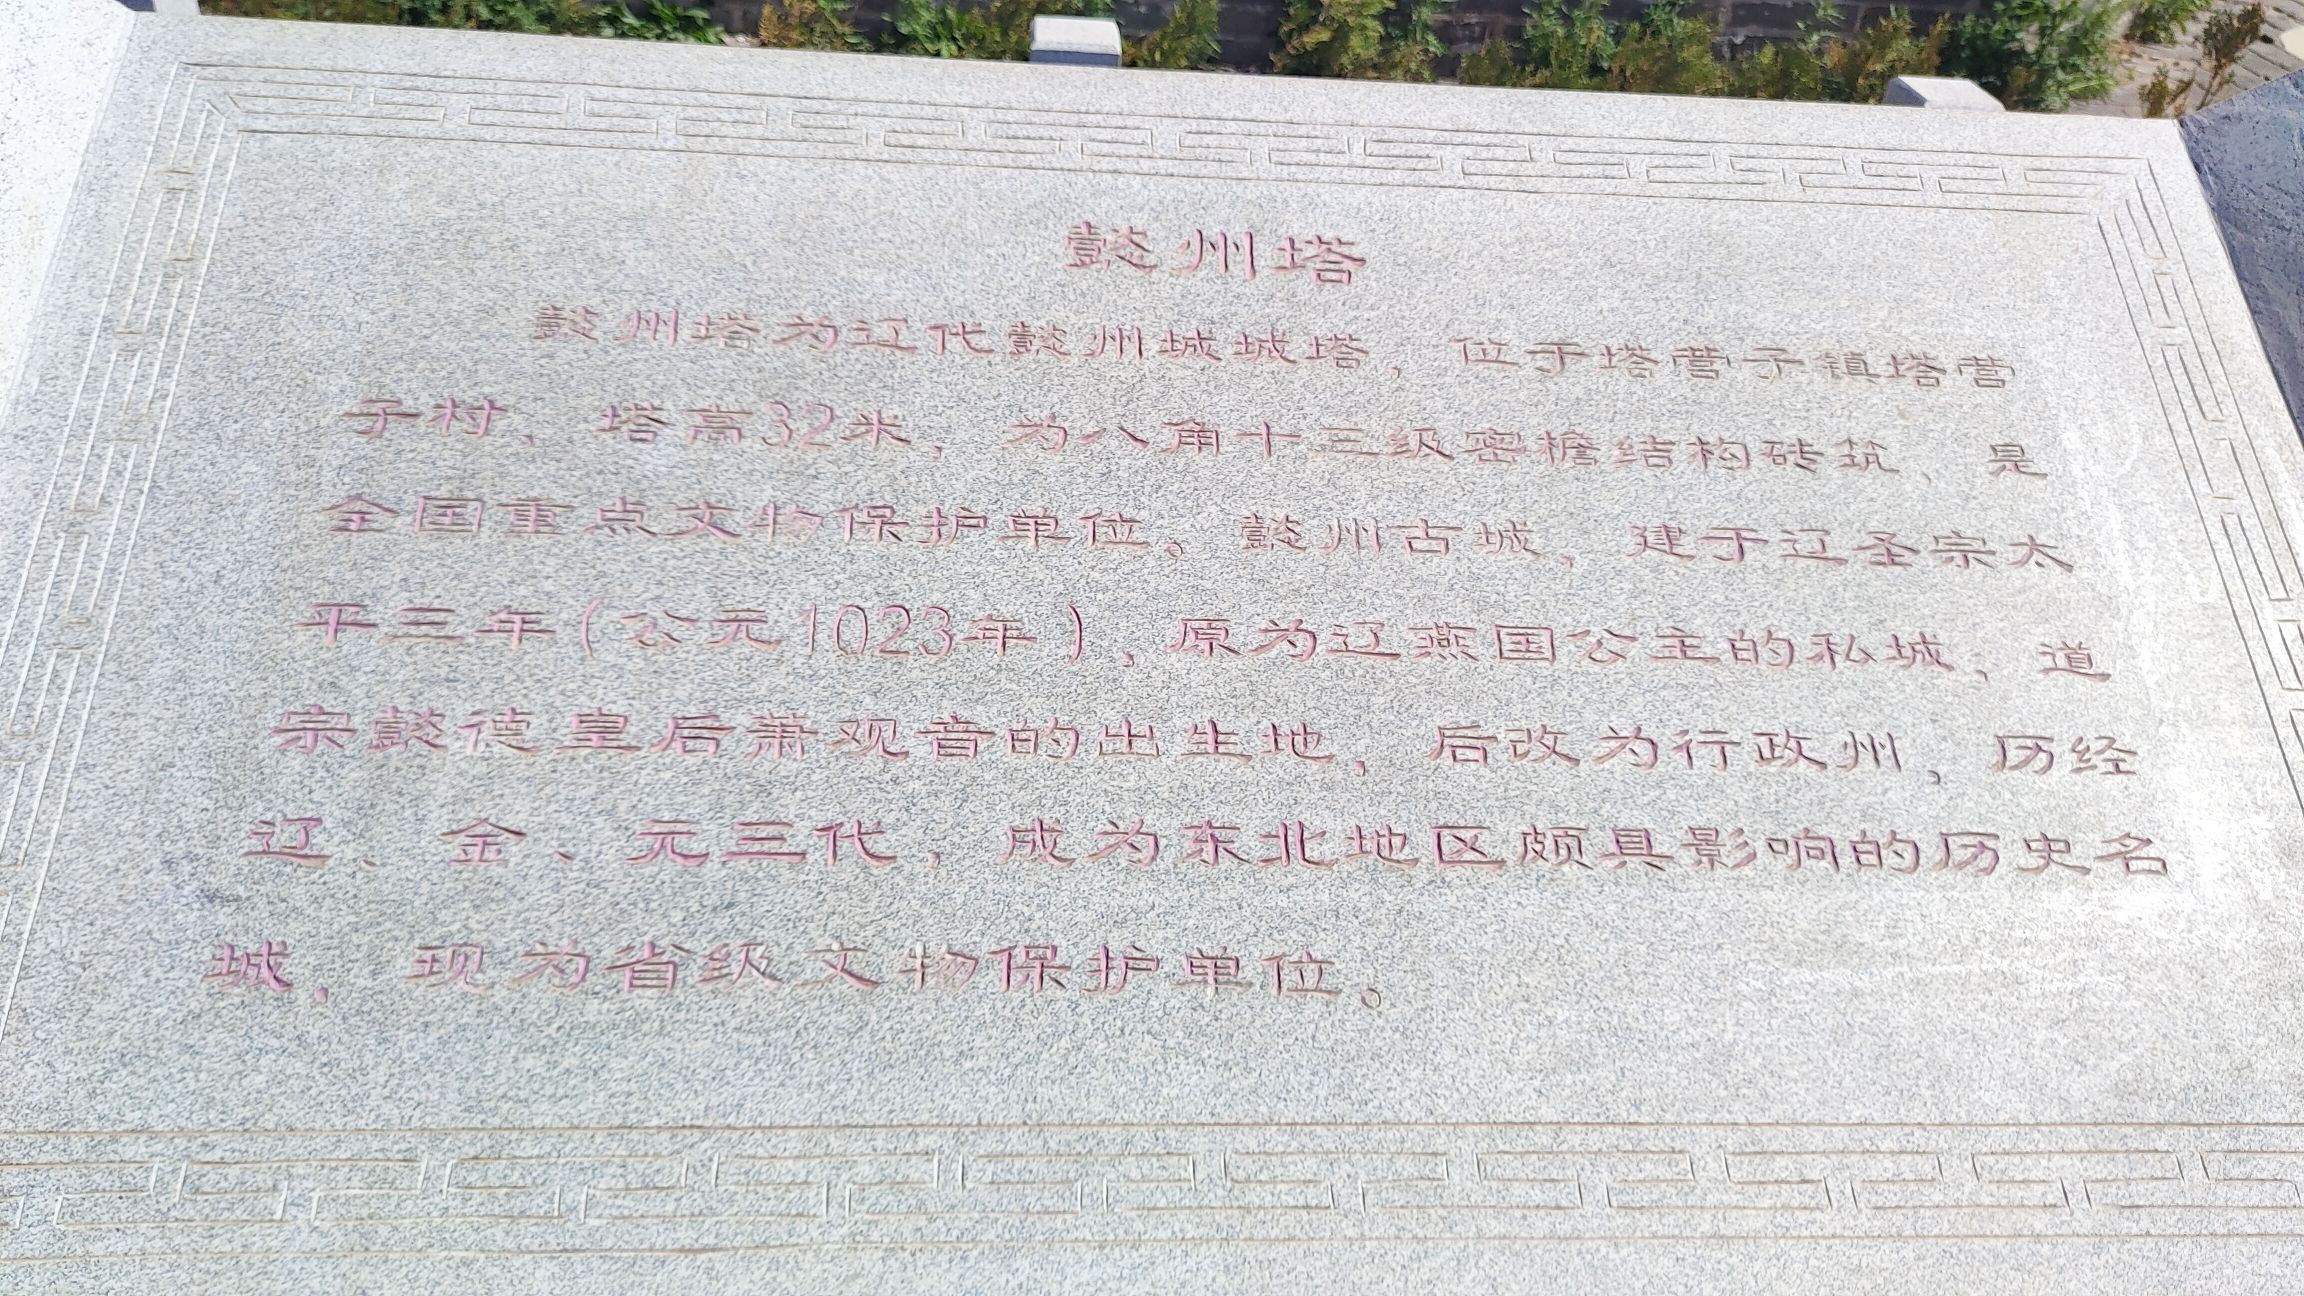 懿州塔
懿州塔为辽代懿州城城塔，位于塔营子镇塔营
子村，塔高32米，为八角十三级密檐结构砖筑，是
全国重点文物保护单位。懿州古城，建于辽圣宗太
平三年(公元1023年)，原为辽燕国公主的私城，道
宗懿德皇后萧观音的出生地，后改为行政州，历经
辽、金、元三代，成为东北地区颇具影响的历史名
城，现为省级文物保护单位。